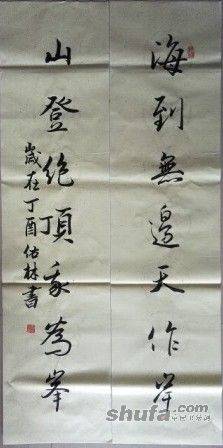 海到無邊天作岸
山登绝頂我為峯
歲在丁酉佑林書
shufa.com